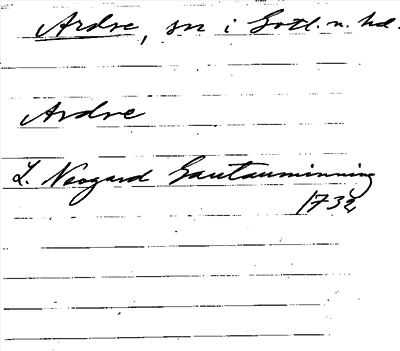 Ardre, sn i Gotl. n. hd.
Ardre
L. Neogard Gautauminning
1732